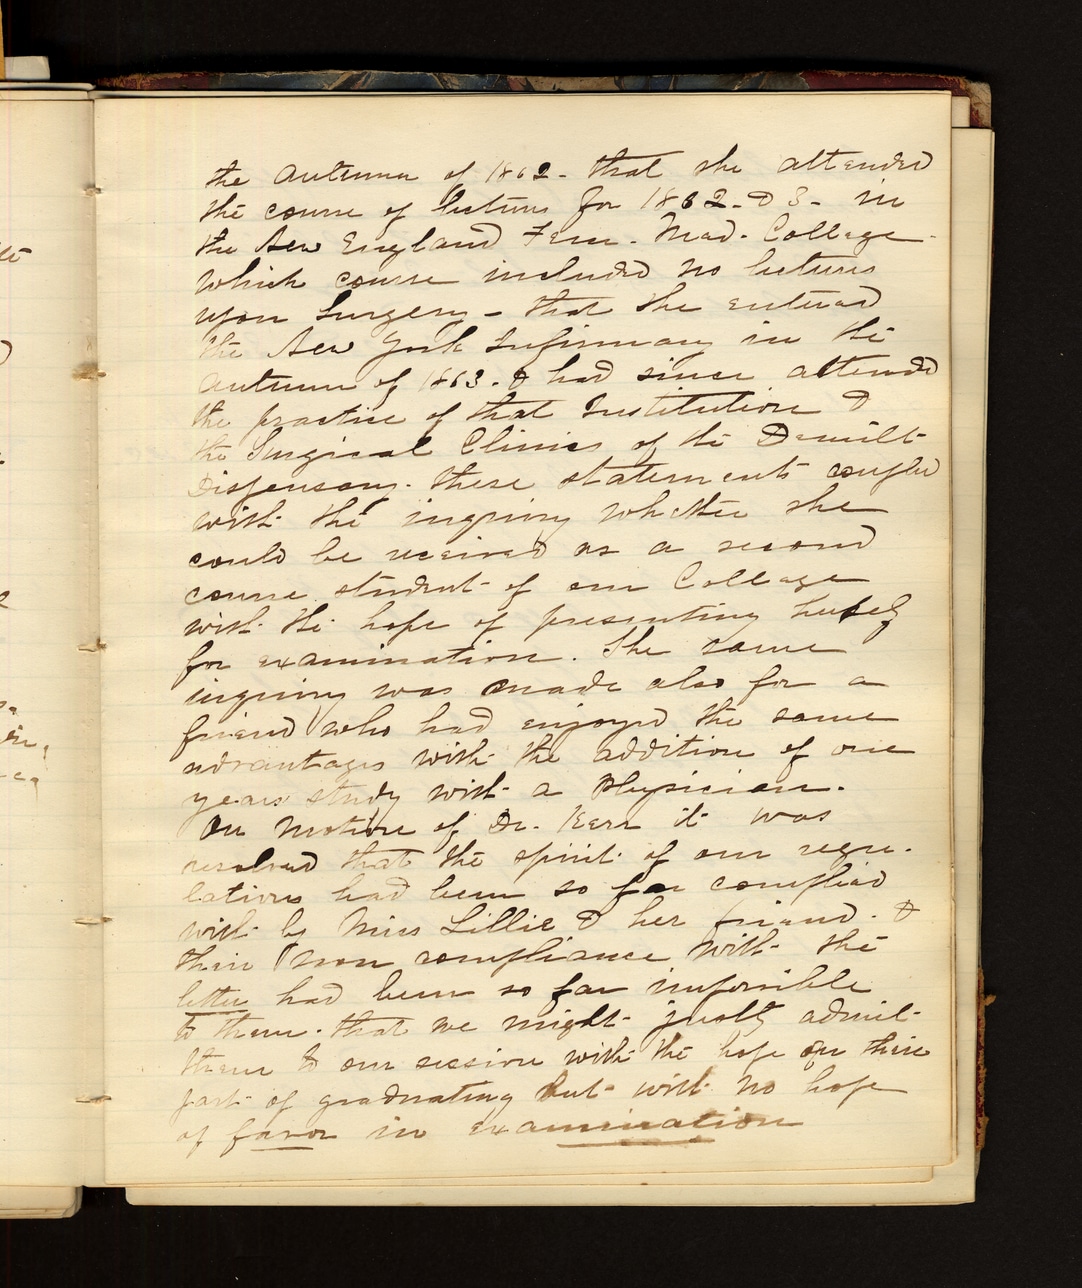 the Autumn of 1862 - that she attended
the course of lectures for 1862 - & 3 - in
the New England Fem. Med. College -
which course included no lectures
upon Surgery - that she entered
the New York Infirmary in the
Autumn of 1863 - & had since attended
the practice of that Institution &
the Surgical Clinics of the Demilt
Dispensary. these statements coupled
with the inquiry whether she
could be received as a second
course student of our College
with the hope of presenting herself
for examination. The same
inquiry was made also for a
friend who had enjoyed the same
advantages with the addition of one
years study with a Physician.
On motion of Dr. Kerr it was
resolved that the spirit of our regu-
lations had been so far complied
with by Miss Lillie & her friend - &
their non compliance with the
letter had been so far impossible
to them - that we might justly admit
them to our session with the hope on their
part of graduating but with no hope
of favor in examination